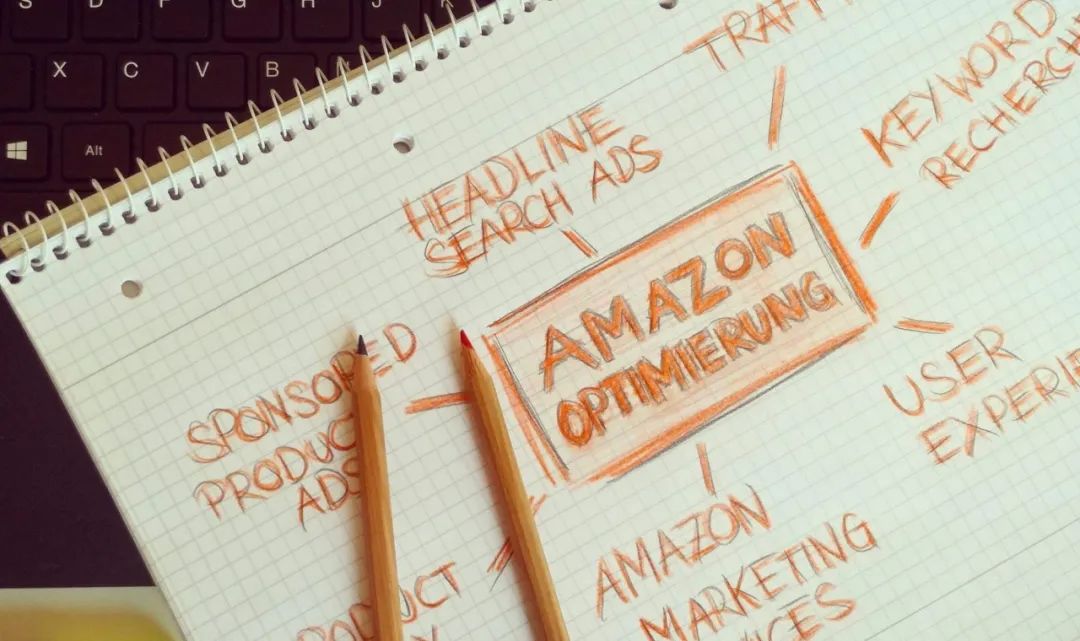 X C V B
Alt
TRAFF
KEYWORD
RECHERCH
HEADLINE
SEARCH ADS
AMAZON
OPTIMIERUNG
SPONSORED
PRODUCT
ADS
USER
EXPERIE
AMAZON
MARKETING